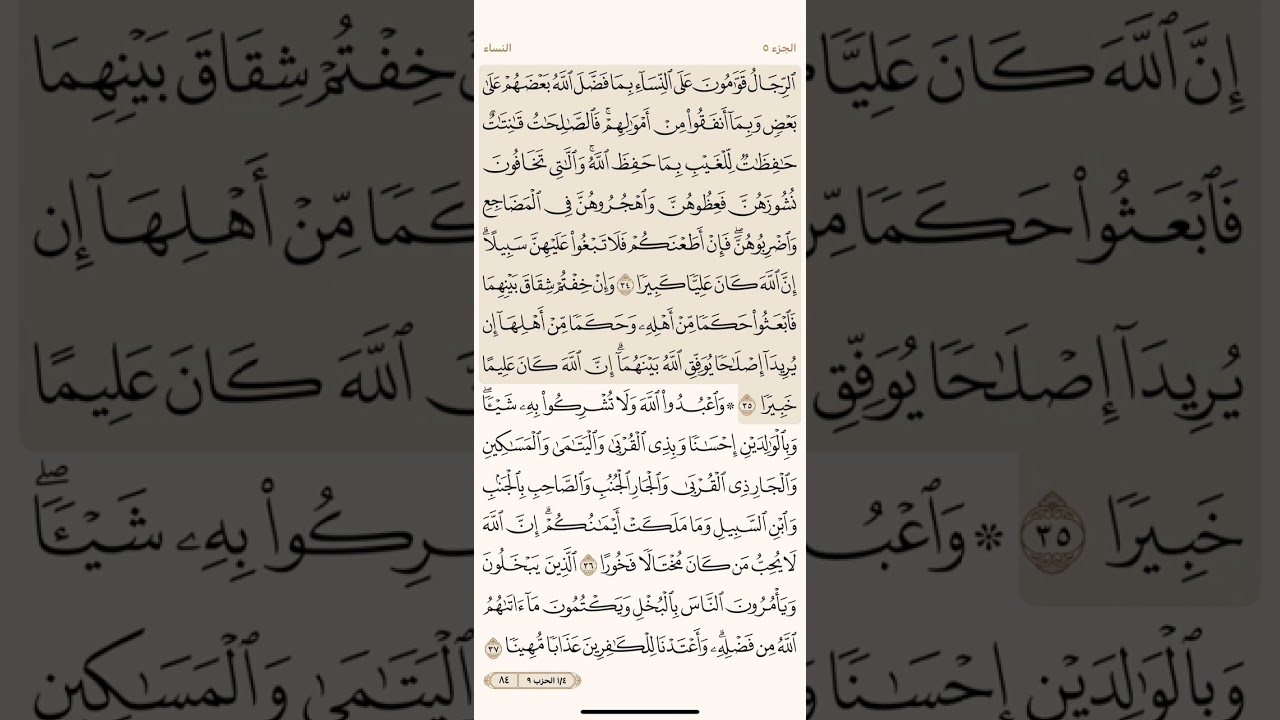 الجزء ٥
النساء
ٱلرِّجَالُ قَوَّٰمُونَ عَلَى ٱلنِّسَآءِ بِمَا فَضَّلَ ٱللَّهُ بَعْضَهُمْ عَلَىٰ
بَعْضٍ وَبِمَآ أَنفَقُوا۟ مِنْ أَمْوَٰلِهِمْ ۚ فَٱلصَّٰلِحَٰتُ قَٰنِتَٰتٌ
حَٰفِظَٰتٌ لِّلْغَيْبِ بِمَا حَفِظَ ٱللَّهُ ۚ وَٱلَّٰتِى تَخَافُونَ
نُشُوزَهُنَّ فَعِظُوهُنَّ وَٱهْجُرُوهُنَّ فِى ٱلْمَضَاجِعِ
وَٱضْرِبُوهُنَّ ۖ فَإِنْ أَطَعْنَكُمْ فَلَا تَبْغُوا۟ عَلَيْهِنَّ سَبِيلًا ۗ
إِنَّ ٱللَّهَ كَانَ عَلِيًّا كَبِيرًا ٣٤ وَإِنْ خِفْتُمْ شِقَاقَ بَيْنِهِمَا
فَٱبْعَثُوا۟ حَكَمًا مِّنْ أَهْلِهِۦ وَحَكَمًا مِّنْ أَهْلِهَآ إِن
يُرِيدَآ إِصْلَٰحًا يُوَفِّقِ ٱللَّهُ بَيْنَهُمَآ ۗ إِنَّ ٱللَّهَ كَانَ عَلِيمًا
خَبِيرًا ٣٥ ۞ وَٱعْبُدُوا۟ ٱللَّهَ وَلَا تُشْرِكُوا۟ بِهِۦ شَيْـًٔا ۖ
وَبِٱلْوَٰلِدَيْنِ إِحْسَٰنًا وَبِذِى ٱلْقُرْبَىٰ وَٱلْيَتَٰمَىٰ وَٱلْمَسَٰكِينِ
وَٱلْجَارِ ذِى ٱلْقُرْبَىٰ وَٱلْجَارِ ٱلْجُنُبِ وَٱلصَّاحِبِ بِٱلْجَنۢبِ
وَٱبْنِ ٱلسَّبِيلِ وَمَا مَلَكَتْ أَيْمَٰنُكُمْ ۗ إِنَّ ٱللَّهَ
لَا يُحِبُّ مَن كَانَ مُخْتَالًا فَخُورًا ٣٦ ٱلَّذِينَ يَبْخَلُونَ
وَيَأْمُرُونَ ٱلنَّاسَ بِٱلْبُخْلِ وَيَكْتُمُونَ مَآ ءَاتَىٰهُمُ
ٱللَّهُ مِن فَضْلِهِۦ ۗ وَأَعْتَدْنَا لِلْكَٰفِرِينَ عَذَابًا مُّهِينًا ٣٧
١/٤ الحزب ٩
٨٤
إِنَّ ٱللَّهَ كَانَ عَلِيًّا
خِفْتُمْ شِقَاقَ بَيْنِهِمَا
فَٱبْعَثُوا۟ حَكَمًا مِّنْ
حَكَمًا مِّنْ أَهْلِهَآ إِن
يُرِيدَآ إِصْلَٰحًا يُوَفِّقِ
ٱللَّهَ كَانَ عَلِيمًا
خَبِيرًا ٣٥ ۞ وَٱعْبُ
ـرِكُوا۟ بِهِۦ شَيْـًٔا ۖ
وَبِٱلْوَٰلِدَيْنِ إِحْسَٰنًا
ٱلْيَتَٰمَىٰ وَٱلْمَسَٰكِينِ